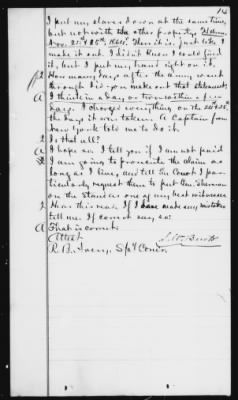 14
I put my slaves down at the same time,
but not with the other property.
Nov. 25th 1864. There it is. Just like I
made it out. I didn't know I could find
it, but I put my hand right on it.
Q How many days after the army went
through did you make out that statement
A I think in a day or two within a few
days. I charge everything on the
the days it was taken. A Captain from
New York told me to do it.
Q Is that all?
A I hope so. I tell you if I am not paid
I am going to prosecute the claim as
long as I live, and tell the Court I par-
ticularly request them to put Gen. Sherman
on the stand as one of my best witnesses
Q Hear this read. If I have made any mistakes
tell me. If correct say so.
A That is correct.
Attest
R. B. Avery, Spl Com'r